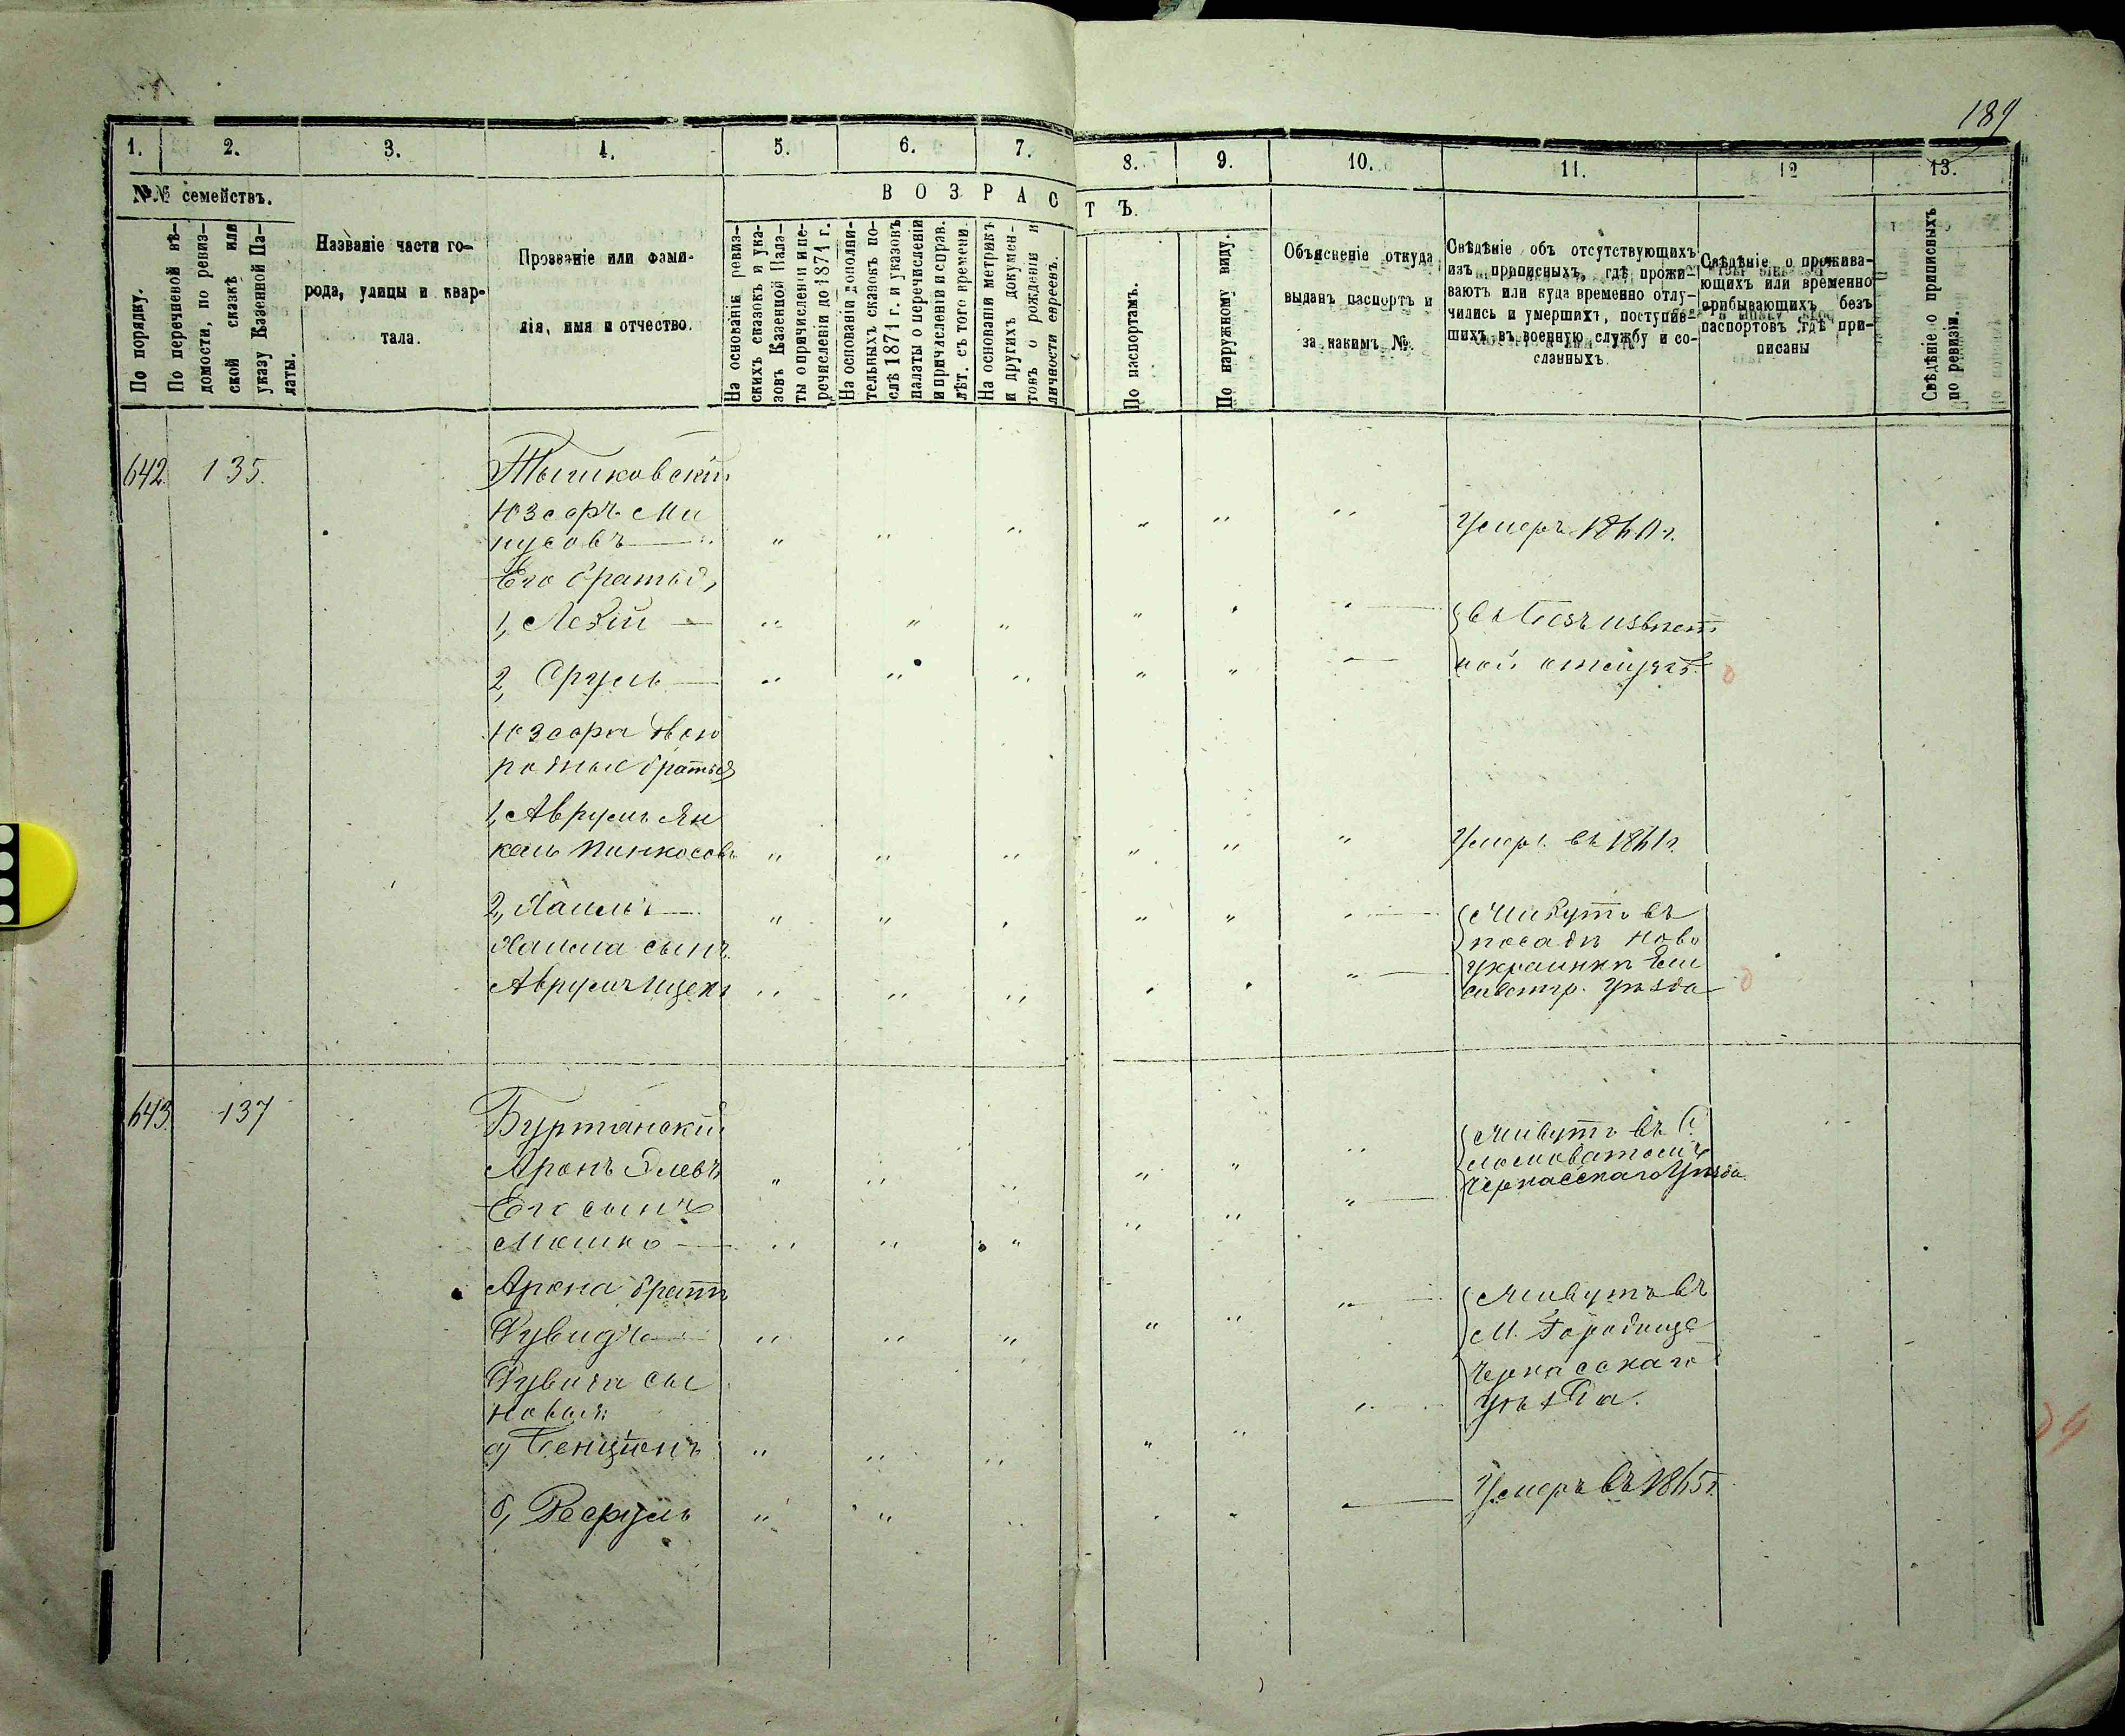 189
1. 2. 3. 4. 5. 6. 7. 8. 9. 10. 11. 12 13.
№№ семействъ.
По порядку.
По перечневой вѣ-
домости, по ревиз-
ской сказкѣ или
указу Казенной Па-
латы.
Названіе части го-
рода, улицы и квар-
тала.
Прозваніе или фами-
лія, имя и отчество.
ВОЗРАСТЪ.
На основаніи ревиз-
скихъ сказокъ и ука-
зовъ Казенной Пала-
ты о причисленіи и пе-
речисленіи до 1871 г.
На основаніи дополни-
тельныхъ сказокъ по-
слѣ 1871 г. и указовъ
палаты о перечисленіи
и причисленіи и справ.
лѣт. съ того времени.
На основаніи метрикъ
и другихъ докумен-
товъ о рожденіи и
личности евреевъ.
По паспортамъ.
По наружному виду.
Объясненіе откуда
выданъ паспортъ и
за какимъ №.
Свѣдѣніе объ отсутствующихъ
изъ приписныхъ, гдѣ прожи-
ваютъ или куда временно отлу-
чились и умершихъ, поступив-
шихъ въ военную службу и со-
сланныхъ.
Свѣдѣніе о прожива-
ющихъ или временно
прибывающихъ безъ
паспортовъ гдѣ при-
писаны
Свѣдѣніе о приписныхъ
по ревизіи.
642. 135.
Тышковскій
Юзефъ Ми
нусовъ
Умеръ 1860 г.
Его братья,
1, Лейзи
въ безъизвѣст
2, Сруль
ной отлучкѣ
Юзефа двою
родные братья
1, Аврумъ Ян
кель Пинкосовъ
Умеръ въ 1861 г.
2, Хаимъ
Живутъ въ
посадѣ Ново
Хаима сынъ
украинкѣ Ели
Аврумъ Ицекъ
саветгр. Уѣзда
643. 137
Буртянскій
Живутъ въ С.
Аронъ Элевъ
Черкасскаго Уѣзда.
Его сынъ
Мошко
Арона братъ
Живутъ въ
Рувинъ
М. Городище
Рувина сы
Черкасскаго
новья:
Уѣзда.
а, Бенціонъ
б, Рефуль
Умеръ въ 1865 г.